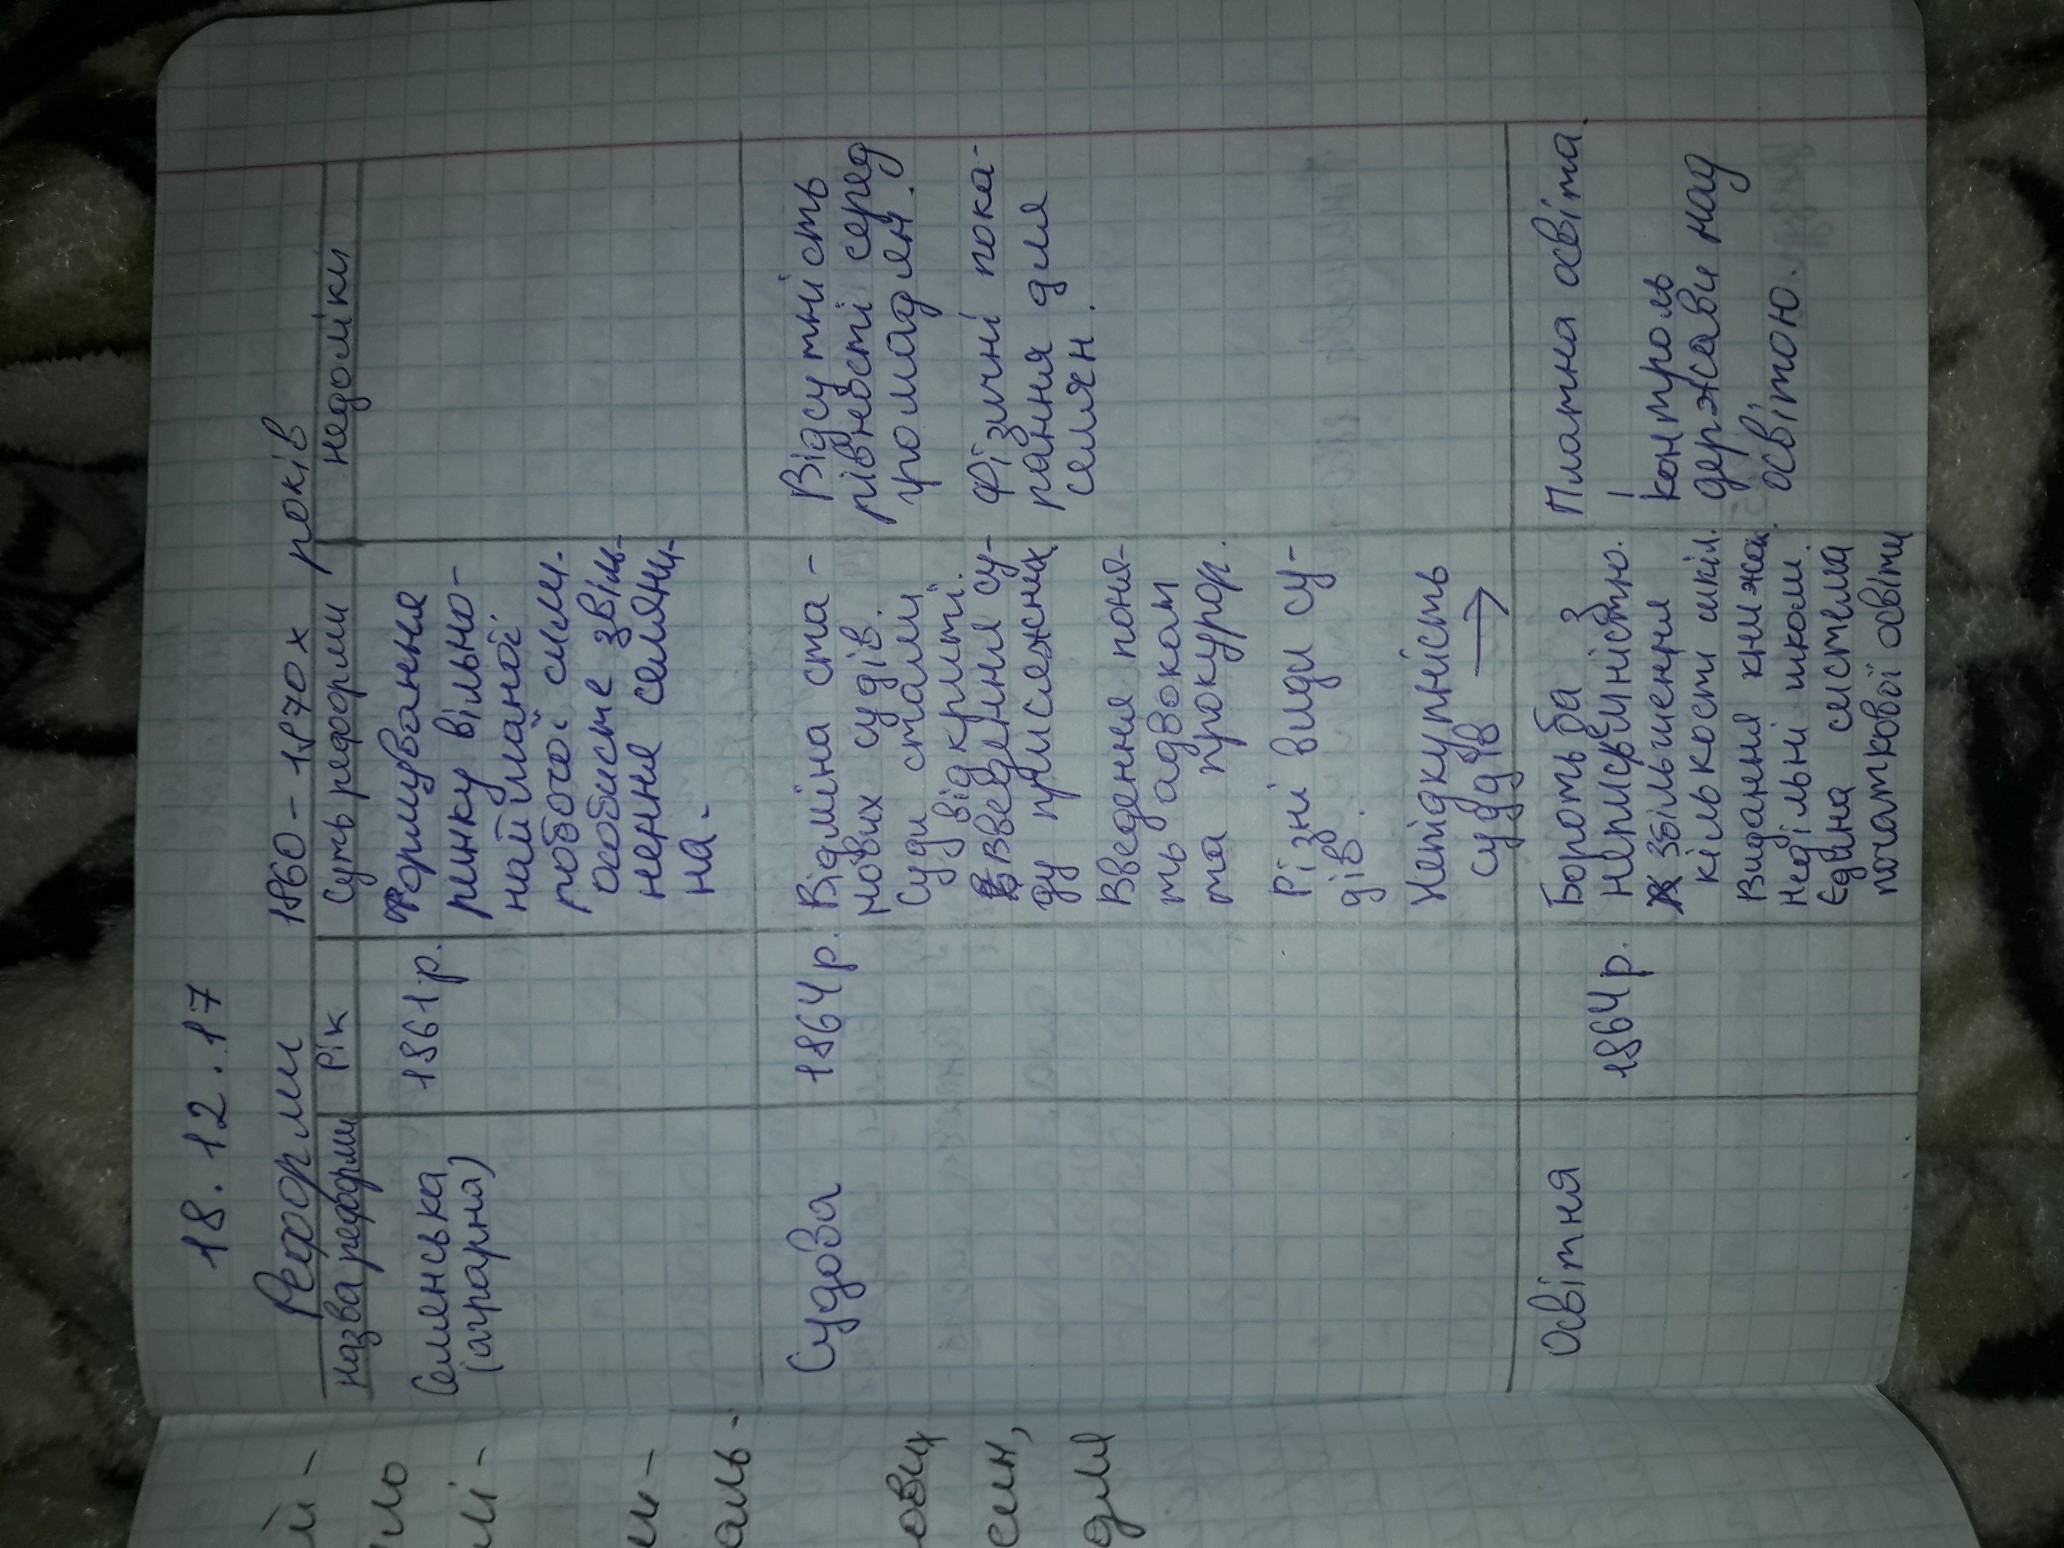 18.12.17
Реформи 1860-1870х років
Назва реформи Рік Суть реформи недоліки
Селянська
(аграрна)
1861р.
Формування
ринку вільно-
найманої
робочої сили.
Особисте звіль-
нення селяни-
на.
Судова
1864р.
Відміна ста-
нових судів.
Суди стали
відкриті.
Введення су-
ду присяжних
Введення поня-
ть адвокат
та прокурор.
Різні види су-
дів.
Непідкупність
суддів →
Відсутність
рівності серед
громадян.
Фізичні пока-
рання для
селян.
Освітня
1864р.
Боротьба з
неписемністю.
Збільшення
кількости шкіл.
Видання книжок.
Недільні школи.
Єдина система
початкової освіти
Платна освіта.
Контроль
держави над
освітою.
й-
ло
лі-
и-
аль-
ових
сил,
для